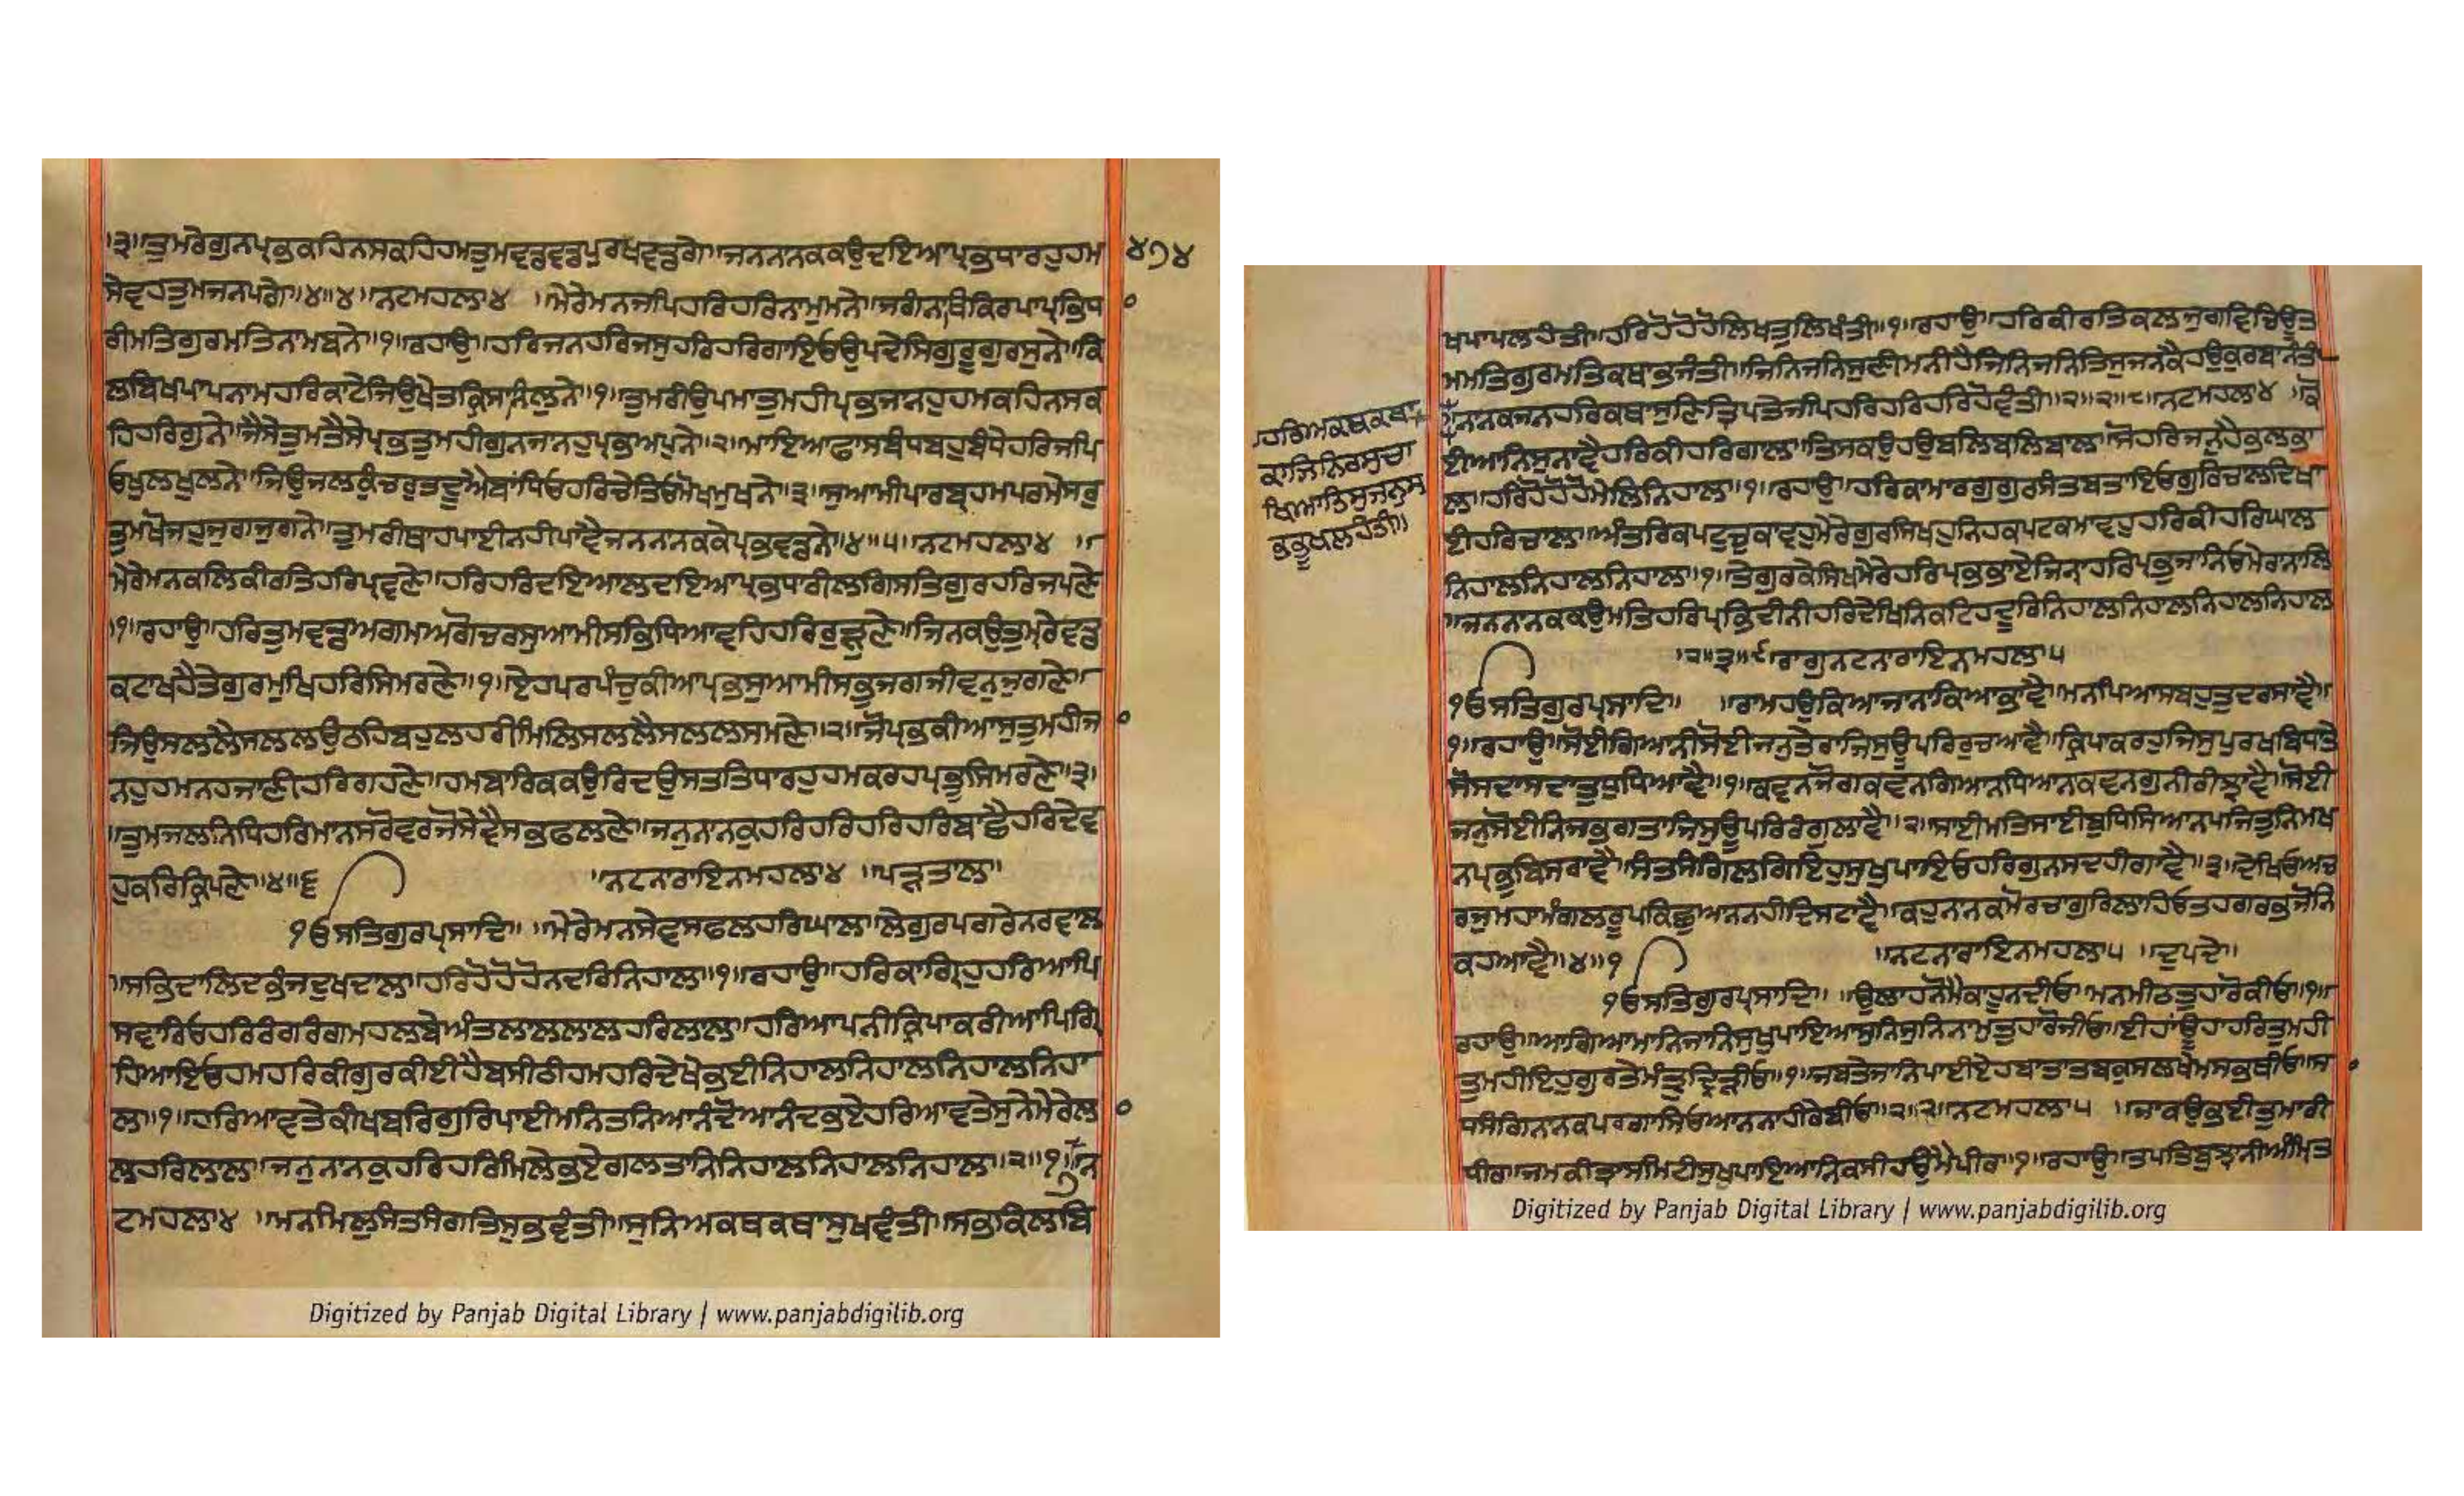 ।੩।ਤੁਮਰੇਗੁਨਪ੍ਰਭਕਹਿਨਸਕਹਿਹਮਤੁਮਵਡਵਡਪੁਰਖਵਡਗੇ॥ਜਨਨਾਨਕਕਉਦਇਆਪ੍ਰਭਧਾਰਹੁਹਮ ੪੭੪
ਸੇਵਹਤੁਮਜਨਪਗੇ॥੪॥੪॥ਨਟਮਹਲਾ੪ ॥ਮੇਰੇਮਨਜਪਿਹਰਿਹਰਿਨਾਮੁਮਨੇ॥ਜਗੰਨਾਥਿਕਿਰਪਾਪ੍ਰਭਿਧ
ਰੀਮਤਿਗੁਰਮਤਿਨਾਮਬਨੇ॥੧॥ਰਹਾਉ॥ਹਰਿਜਨਹਰਿਜਸੁਹਰਿਹਰਿਗਾਇਓਉਪਦੇਸਿਗੁਰੂਗੁਰਸੁਨੇ॥ਕਿ
ਲਬਿਖਪਾਪਨਾਮਹਰਿਕਾਟੇਜਿਉਖੇਤਕ੍ਰਿਸਾਨਿਲੁਨੇ॥੧॥ਤੁਮਰੀਉਪਮਾਤੁਮਹੀਪ੍ਰਭਜਾਨਹੁਹਮਕਹਿਨਸਕ
ਹਿਹਰਿਗੁਨੇ॥ਜੈਸੇਤੁਮਤੈਸੇਪ੍ਰਭਤੁਮਹੀਗੁਨਜਾਨਹੁਪ੍ਰਭਅਪੁਨੇ॥੨॥ਮਾਇਆਫਾਸਬੰਧਬਹੁਬੰਧੇਹਰਿਜਪਿ
ਓਖੁਲਖੁਲਨੇ॥ਜਿਉਜਲਕੁੰਚਰੁਤਦੂਐਬਾਂਧਿਓਹਰਿਚੇਤਿਓਮੋਖਮੁਖਨੇ॥੩॥ਸੁਆਮੀਪਾਰਬ੍ਰਹਮਪਰਮੇਸਰੁ
ਤੁਮਖੋਜਹੁਜੁਗਜੁਗਨੇ॥ਤੁਮਰੀਥਾਹਪਾਈਨਹੀਪਾਵੈਜਨਨਾਨਕਕੇਪ੍ਰਭਵਡਨੇ॥੪॥੫॥ਨਟਮਹਲਾ੪ ॥
ਮੇਰੇਮਨਕਲਿਕੀਰਤਿਹਰਿਪ੍ਰਵਣੇ॥ਹਰਿਹਰਿਦਇਆਲਦਇਆਪ੍ਰਭਧਾਰੀਲਗਿਸਤਿਗੁਰਹਰਿਜਪਣੇ
॥੧॥ਰਹਾਉ॥ਹਰਿਤੁਮਵਡਅਗਮਅਗੋਚਰਸੁਆਮੀਸਭਿਧਿਆਵਹਿਹਰਿਰੁੜਣੇ॥ਜਿਨਕਉਤੁਮ੍ਰੇਵਡ
ਕਟਾਖਹੈਤੇਗੁਰਮੁਖਿਹਰਿਸਿਮਰਣੇ॥੧॥ਇਹੁਪਰਪੰਚੁਕੀਆਪ੍ਰਭਸੁਆਮੀਸਭੁਜਗਜੀਵਨੁਜੁਗਣੇ॥
ਜਿਉਸਲਲੈਸਲਲਉਠਹਿਬਹੁਲਹਰੀਮਿਲਿਸਲਲੈਸਲਲਸਮਣੇ॥੨॥ਜੋਪ੍ਰਭਕੀਆਸੁਤੁਮਹੀਜ
ਨਹੁਹਮਨਹਜਾਣੀਹਰਿਗਹਣੇ॥ਹਮਬਾਰਿਕਕਉਰਿਦਉਸਤਤਿਧਾਰਹੁਹਮਕਰਹਪ੍ਰਭੂਸਿਮਰਣੇ॥੩॥
॥ਤੁਮਜਲਨਿਧਿਹਰਿਮਾਨਸਰੋਵਰਜੋਸੇਵੈਸਭਫਲਣੇ॥ਜਨੁਨਾਨਕੁਹਰਿਹਰਿਹਰਿਹਰਿਬਾਛੈਹਰਿਦੇਵ
ਹੁਕਰਿਕ੍ਰਿਪਣੇ॥੪॥੬ ॥ਨਟਨਾਰਾਇਨਮਹਲਾ੪ ॥ਪੜਤਾਲ॥
੧ਓਸਤਿਗੁਰਪ੍ਰਸਾਦਿ॥ ॥ਮੇਰੇਮਨਸੇਵਸਫਲਹਰਿਘਾਲ॥ਲੇਗੁਰਪਗਰੇਨਰਵਾਲ
॥ਸਭਿਦਾਲਿਦਭੰਜਦੁਖਦਾਲ॥ਹਰਿਹੋਹੋਹੋਨਦਰਿਨਿਹਾਲ॥੧॥ਰਹਾਉ॥ਹਰਿਕਾਗ੍ਰਿਹੁਹਰਿਆਪਿ
ਸਵਾਰਿਓਹਰਿਰੰਗਰੰਗਮਹਲਬੇਅੰਤਲਾਲਲਾਲਹਰਿਲਾਲ॥ਹਰਿਆਪਨੀਕ੍ਰਿਪਾਕਰੀਆਪਿਗ੍ਰਿ
ਹਿਆਇਓਹਮਹਰਿਕੀਗੁਰਕੀਈਹੈਬਸੀਠੀਹਮਹਰਿਦੇਖੇਭਈਨਿਹਾਲਨਿਹਾਲਨਿਹਾਲਨਿਹਾ
ਲ॥੧॥ਹਰਿਆਵਤੇਕੀਖਬਰਿਗੁਰਿਪਾਈਮਨਿਤਨਿਆਨੰਦੋਆਨੰਦਭਏਹਰਿਆਵਤੇਸੁਨੇਮੇਰੇਲ
ਲਹਰਿਲਾਲ॥ਜਨੁਨਾਨਕੁਹਰਿਹਰਿਮਿਲੇਭਏਗਲਤਾਨਿਨਿਹਾਲਨਿਹਾਲਨਿਹਾਲ॥੨॥੧॥੭॥ਨ
ਟਮਹਲਾ੪ ॥ਮਨਮਿਲੁਸੰਤਸੰਗਤਿਸੁਭਵੰਤੀ॥ਸੁਨਿਅਕਥਕਥਾਸੁਖਵੰਤੀ॥ਸਭਕਿਲਬਿ
Digitized by Panjab Digital Library | www.panjabdigilib.org
ਖਪਾਪਲਹੰਤੀ॥ਹਰਿਹੋਹੋਹੋਲਿਖਤੁਲਿਖੰਤੀ॥੧॥ਰਹਾਉ॥ਹਰਿਕੀਰਤਿਕਲਜੁਗਵਿਚਿਊਤ
ਮਮਤਿਗੁਰਮਤਿਕਥਾਭਜੰਤੀ॥ਜਿਨਿਜਨਿਸੁਣੀਮਨੀਹੈਜਿਨਿਜਨਿਤਿਸੁਜਨਕੈਹਉਕੁਰਬਾਨੰਤੀ
॥ਨਾਨਕਜਨਹਰਿਕਥਾਸੁਣਿਤ੍ਰਿਪਤੇਜਪਿਹਰਿਹਰਿਹਰਿਹੋਵੰਤੀ॥੨॥੨॥੮॥ਨਟਮਹਲਾ੪ ॥ਕੋ
ਹਰਿਅਕਥਕਥਾ
ਕਾਜਿਨਿਰਸੁਚਾ
ਖਿਆਤਿਸੁਜਨਸ
ਭਭੂਖਲਹੰਤੀ॥
ਈਆਨਿਸੁਨਾਵੈਹਰਿਕੀਹਰਿਗਾਲ॥ਤਿਸਕਉਹਉਬਲਿਬਲਿਬਾਲ॥ਸੋਹਰਿਜਨੁਹੈਭਲਭਾ
ਲ॥ਹਰਿਹੋਹੋਹੋਮੇਲਿਨਿਹਾਲ॥੧॥ਰਹਾਉ॥ਹਰਿਕਾਮਾਰਗੁਗੁਰਸੰਤਬਤਾਇਓਗੁਰਿਚਾਲਦਿਖਾ
ਈਹਰਿਚਾਲ॥ਅੰਤਰਿਕਪਟੁਚੁਕਾਵਹੁਮੇਰੇਗੁਰਸਿਖਹੁਨਿਹਕਪਟਕਮਾਵਹੁਹਰਿਕੀਹਰਿਘਾਲ
ਨਿਹਾਲਨਿਹਾਲਨਿਹਾਲ॥੧॥ਤੇਗੁਰਕੇਸਿਖਮੇਰੇਹਰਿਪ੍ਰਭਭਾਏਜਿਨਾਹਰਿਪ੍ਰਭੁਜਾਨਿਓਮੇਰਾਨਾਲਿ
॥ਜਨਨਾਨਕਕਉਮਤਿਹਰਿਪ੍ਰਭਿਦੀਨੀਹਰਿਦੇਖਿਨਿਕਟਿਹਦੂਰਿਨਿਹਾਲਨਿਹਾਲਨਿਹਾਲਨਿਹਾਲ
॥੨॥੩॥੯॥ਰਾਗੁਨਟਨਾਰਾਇਨਮਹਲਾ੫
੧ਓਸਤਿਗੁਰਪ੍ਰਸਾਦਿ॥ ॥ਰਾਮਹਉਕਿਆਜਾਨਾਕਿਆਭਾਵੈ॥ਮਨਪਿਆਸਬਹੁਤੁਦਰਸਾਵੈ॥
੧॥ਰਹਾਉ॥ਸੋਈਗਿਆਨੀਸੋਈਜਨੁਤੇਰਾਜਿਸੁਊਪਰਿਰੁਚਆਵੈ॥ਕ੍ਰਿਪਾਕਰਹੁਜਿਸੁਪੁਰਖਬਿਧਾਤੇ
ਸੋਸਦਾਸਦਾਤੁਧੁਧਿਆਵੈ॥੧॥ਕਵਨਜੋਗਕਵਨਗਿਆਨਧਿਆਨਕਵਨਗੁਨੀਰੀਝਾਵੈ॥ਸੋਈ
ਜਨੁਸੋਈਨਿਜਭਗਤਾਜਿਸੁਊਪਰਿਰੰਗੁਲਾਵੈ॥੨॥ਸਾਈਮਤਿਸਾਈਬੁਧਿਸਿਆਨਪਜਿਤੁਨਿਮਖ
ਨਪ੍ਰਭੁਬਿਸਰਾਵੈ॥ਸੰਤਸੰਗਿਲਗਿਇਹੁਸੁਖੁਪਾਇਓਹਰਿਗੁਨਸਦਹੀਗਾਵੈ॥੩॥ਦੇਖਿਓਅਚ
ਰਜੁਮਹਾਮੰਗਲਰੂਪਕਿਛੁਆਨਨਹੀਦਿਸਟਾਵੈ॥ਕਹੁਨਾਨਕਮੋਰਚਾਗੁਰਿਲਾਹਿਓਤਹਗਰਭਜੋਨਿ
ਕਹਆਵੈ॥੪॥੧ ॥ਨਟਨਾਰਾਇਨਮਹਲਾ੫ ॥ਦੁਪਦੇ॥
੧ਓਸਤਿਗੁਰਪ੍ਰਸਾਦਿ॥ ॥ਉਲਾਹਨੋਮੈਕਾਹੂਨਦੀਓ॥ਮਨਮੀਠਤੁਹਾਰੋਕੀਓ॥੧॥
ਰਹਾਉ॥ਆਗਿਆਮਾਨਿਜਾਨਿਸੁਖੁਪਾਇਆਸੁਨਿਸੁਨਿਨਾਮੁਤੁਹਾਰੋਜੀਓ॥ਈਹਾਂਊਹਾਹਰਿਤੁਮਹੀ
ਤੁਮਹੀਇਹੁਗੁਰਤੇਮੰਤ੍ਰੁਦ੍ਰਿੜੀਓ॥੧॥ਜਬਤੇਜਾਨਿਪਾਈਏਹਬਾਤਾਤਬਕੁਸਲਖੇਮਸਭਥੀਓ॥ਸ
ਧਸੰਗਿਨਾਨਕਪਰਗਾਸਿਓਆਨਨਾਹੀਰੇਬੀਓ॥੨॥੨॥ਨਟਮਹਲਾ੫ ॥ਜਾਕਉਭਈਤੁਮਾਰੀ
ਧੀਰ॥ਜਮਕੀਤ੍ਰਾਸਮਿਟੀਸੁਖੁਪਾਇਆਨਿਕਸੀਹਉਮੈਪੀਰ॥੧॥ਰਹਾਉ॥ਤਪਤਿਬੁਝਾਨੀਅੰਮ੍ਰਿਤ
Digitized by Panjab Digital Library | www.panjabdigilib.org